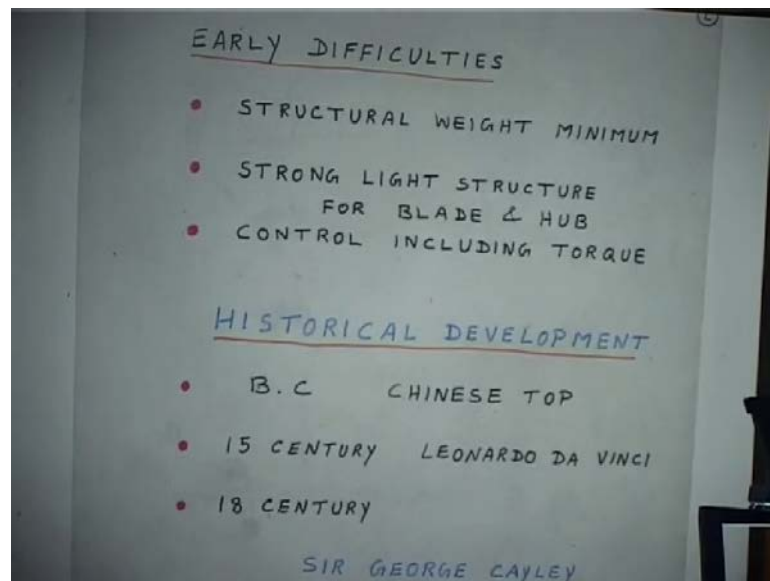 EARLY DIFFICULTIES
• STRUCTURAL WEIGHT MINIMUM
• STRONG LIGHT STRUCTURE
FOR BLADE & HUB
• CONTROL INCLUDING TORQUE
HISTORICAL DEVELOPMENT
• B.C CHINESE TOP
• 15 CENTURY LEONARDO DA VINCI
• 18 CENTURY
SIR GEORGE CAYLEY